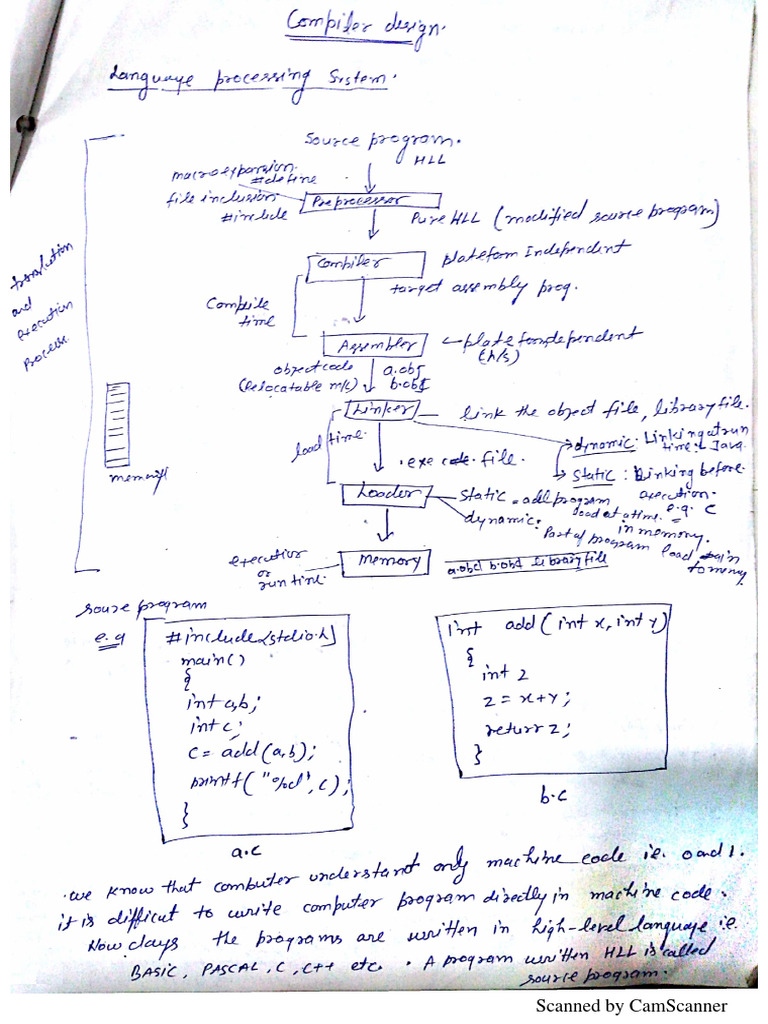 Compiler design.
Language processing System.
Source program.
HLL
macro expansion
#define
file inclusion
#include
Preprocessor
Pure HLL (modified source program)
Compiler
plateform Independent
target assembly prog.
Compile time
translation and execution process
Assembler
plateform dependent
(h/s)
object code
(relocatable m/c)
a.obj
b.obj
Linker
link the object file, library file.
load time
dynamic. Linking at run time. Java.
.exe code file.
Static : Linking before execution. e.g. C
memory
Loader
static = add program load at a time in memory.
dynamic: Part of program load in to memory
execution or run time.
Memory
a.obd b.obd library file
sourse program
e.g
#include<stdio.h
main()
{
int a,b;
int c;
c= add(a,b);
printf("%d", c);
}
a.c
int add(int x, int y)
{
int z
z = x+y;
return z;
}
b.c
we know that computer understand only machine code i.e. 0 and 1.
it is difficult to write computer program directly in machine code.
Now days the programs are written in high-level language i.e.
BASIC, PASCAL, C, C++ etc. A program written HLL is called
source program.
Scanned by CamScanner